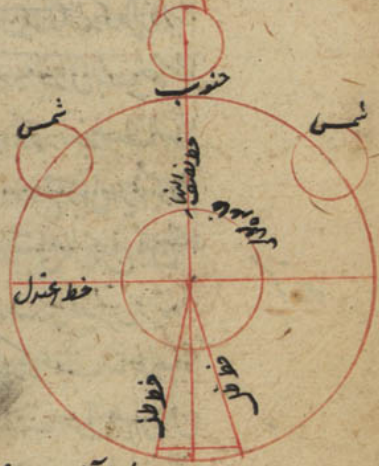 جنوب
شمس
شمس
خط نصف النهار
خط اعتدل
خط ظل
خط ظل